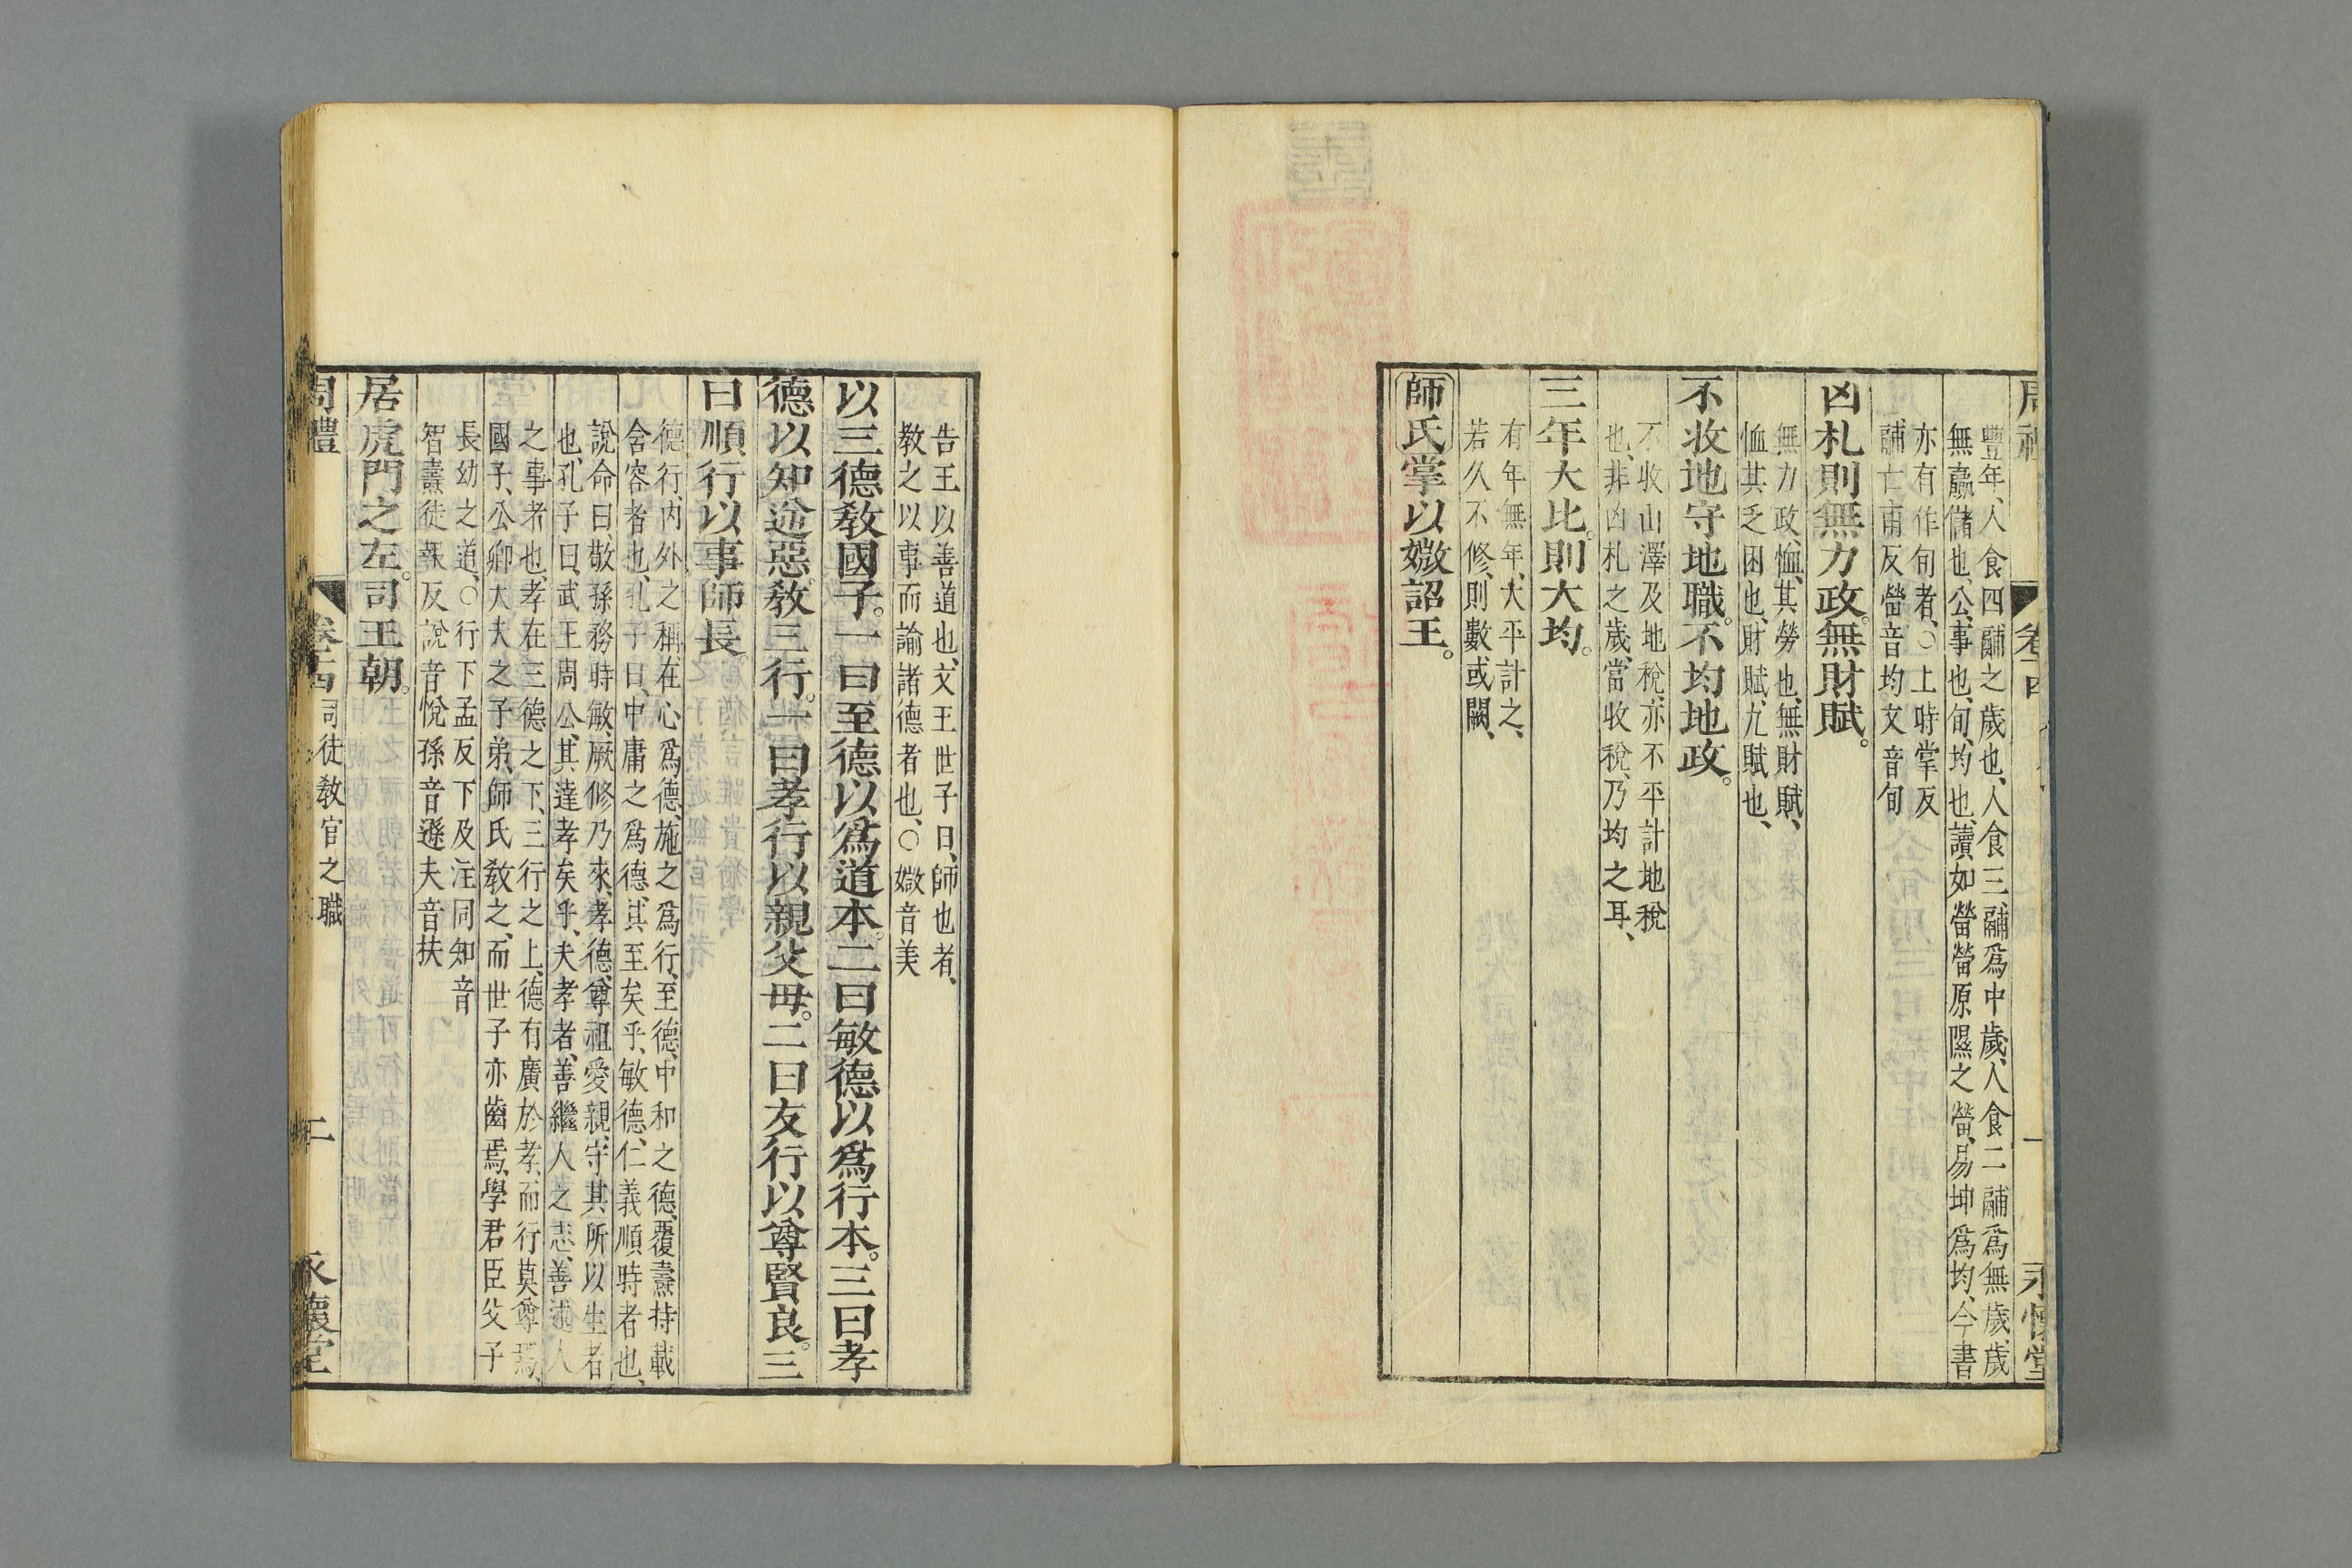 豐年、人食四鬴之歲也、人食三鬴爲中歲、人食二鬴爲無歲、歲
無贏儲也、公、事也、旬、均也、讀如㽦㽦原隰之㽦、易坤爲均、今書
亦有作旬者、○上時掌反
鬴亡甫反㽦音均、又音旬
凶札則無力政。無財賦。
無力政、恤其勞也、無財賦、
恤其乏困也、財賦、九賦也、
不收地守地職。不均地政。
不收山澤及地稅、亦不平計地稅
也、非凶札之歲、當收稅、乃均之耳、
三年大比。則大均。
有年無年、大平計之、
若久不修、則數或闕、
師氏掌以媺詔王。
告王以善道也、文王世子曰、師也者、
教之以事而諭諸德者也、○媺音美
以三德敎國子。一曰至德以爲道本。二曰敏德以爲行本。三曰孝
德以知逆惡。敎三行。一曰孝行以親父母。二曰友行以尊賢良。三
曰順行以事師長。
德行、内外之稱、在心爲德、施之爲行、至德、中和之德、覆燾持載
含容者也、孔子曰、中庸之爲德、其至矣乎、敏德、仁義順時者也、
說命曰、敬孫務時敏、厥修乃來、孝德、尊祖愛親、守其所以生者
也、孔子曰、武王周公、其達孝矣乎、夫孝者、善繼人之志、善述人
之事者也、孝在三德之下、三行之上、德有廣於孝、而行莫尊焉、
國子、公卿大夫之子弟、師氏敎之、而世子亦齒焉、學君臣父子
長幼之道、○行下孟反下下及注同知音
智燾徒報反說音悅孫音遜夫音扶
居虎門之左。司王朝。
周禮 卷十四 司徒敎官之職 二 永懷堂